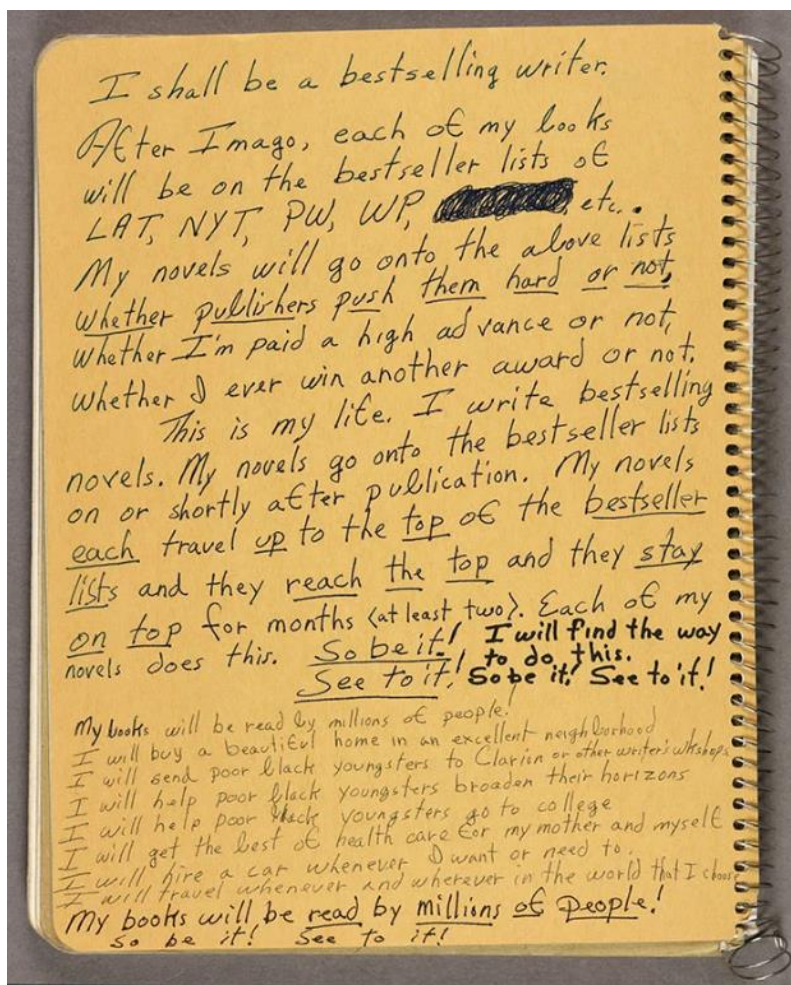 I shall be a bestselling writer.
After Imago, each of my books
will be on the bestseller lists of
LAT, NYT, PW, WP, etc.
My novels will go onto the above lists
whether publishers push them hard or not,
whether I'm paid a high advance or not,
whether I ever win another award or not.
This is my life. I write bestselling
novels. My novels go onto the bestseller lists
on or shortly after publication. My novels
each travel up to the top of the bestseller
lists and they reach the top and they stay
on top for months (at least two). Each of my
novels does this. So be it! I will find the way
See to it! to do this.
So be it! See to it!
My books will be read by millions of people!
I will buy a beautiful home in an excellent neighborhood
I will send poor black youngsters to Clarion or other writer's wkshops
I will help poor black youngsters broaden their horizons
I will help poor black youngsters go to college
I will get the best of health care for my mother and myself
I will hire a car whenever I want or need to.
I will travel whenever and wherever in the world that I choose
My books will be read by millions of people!
So be it! See to it!